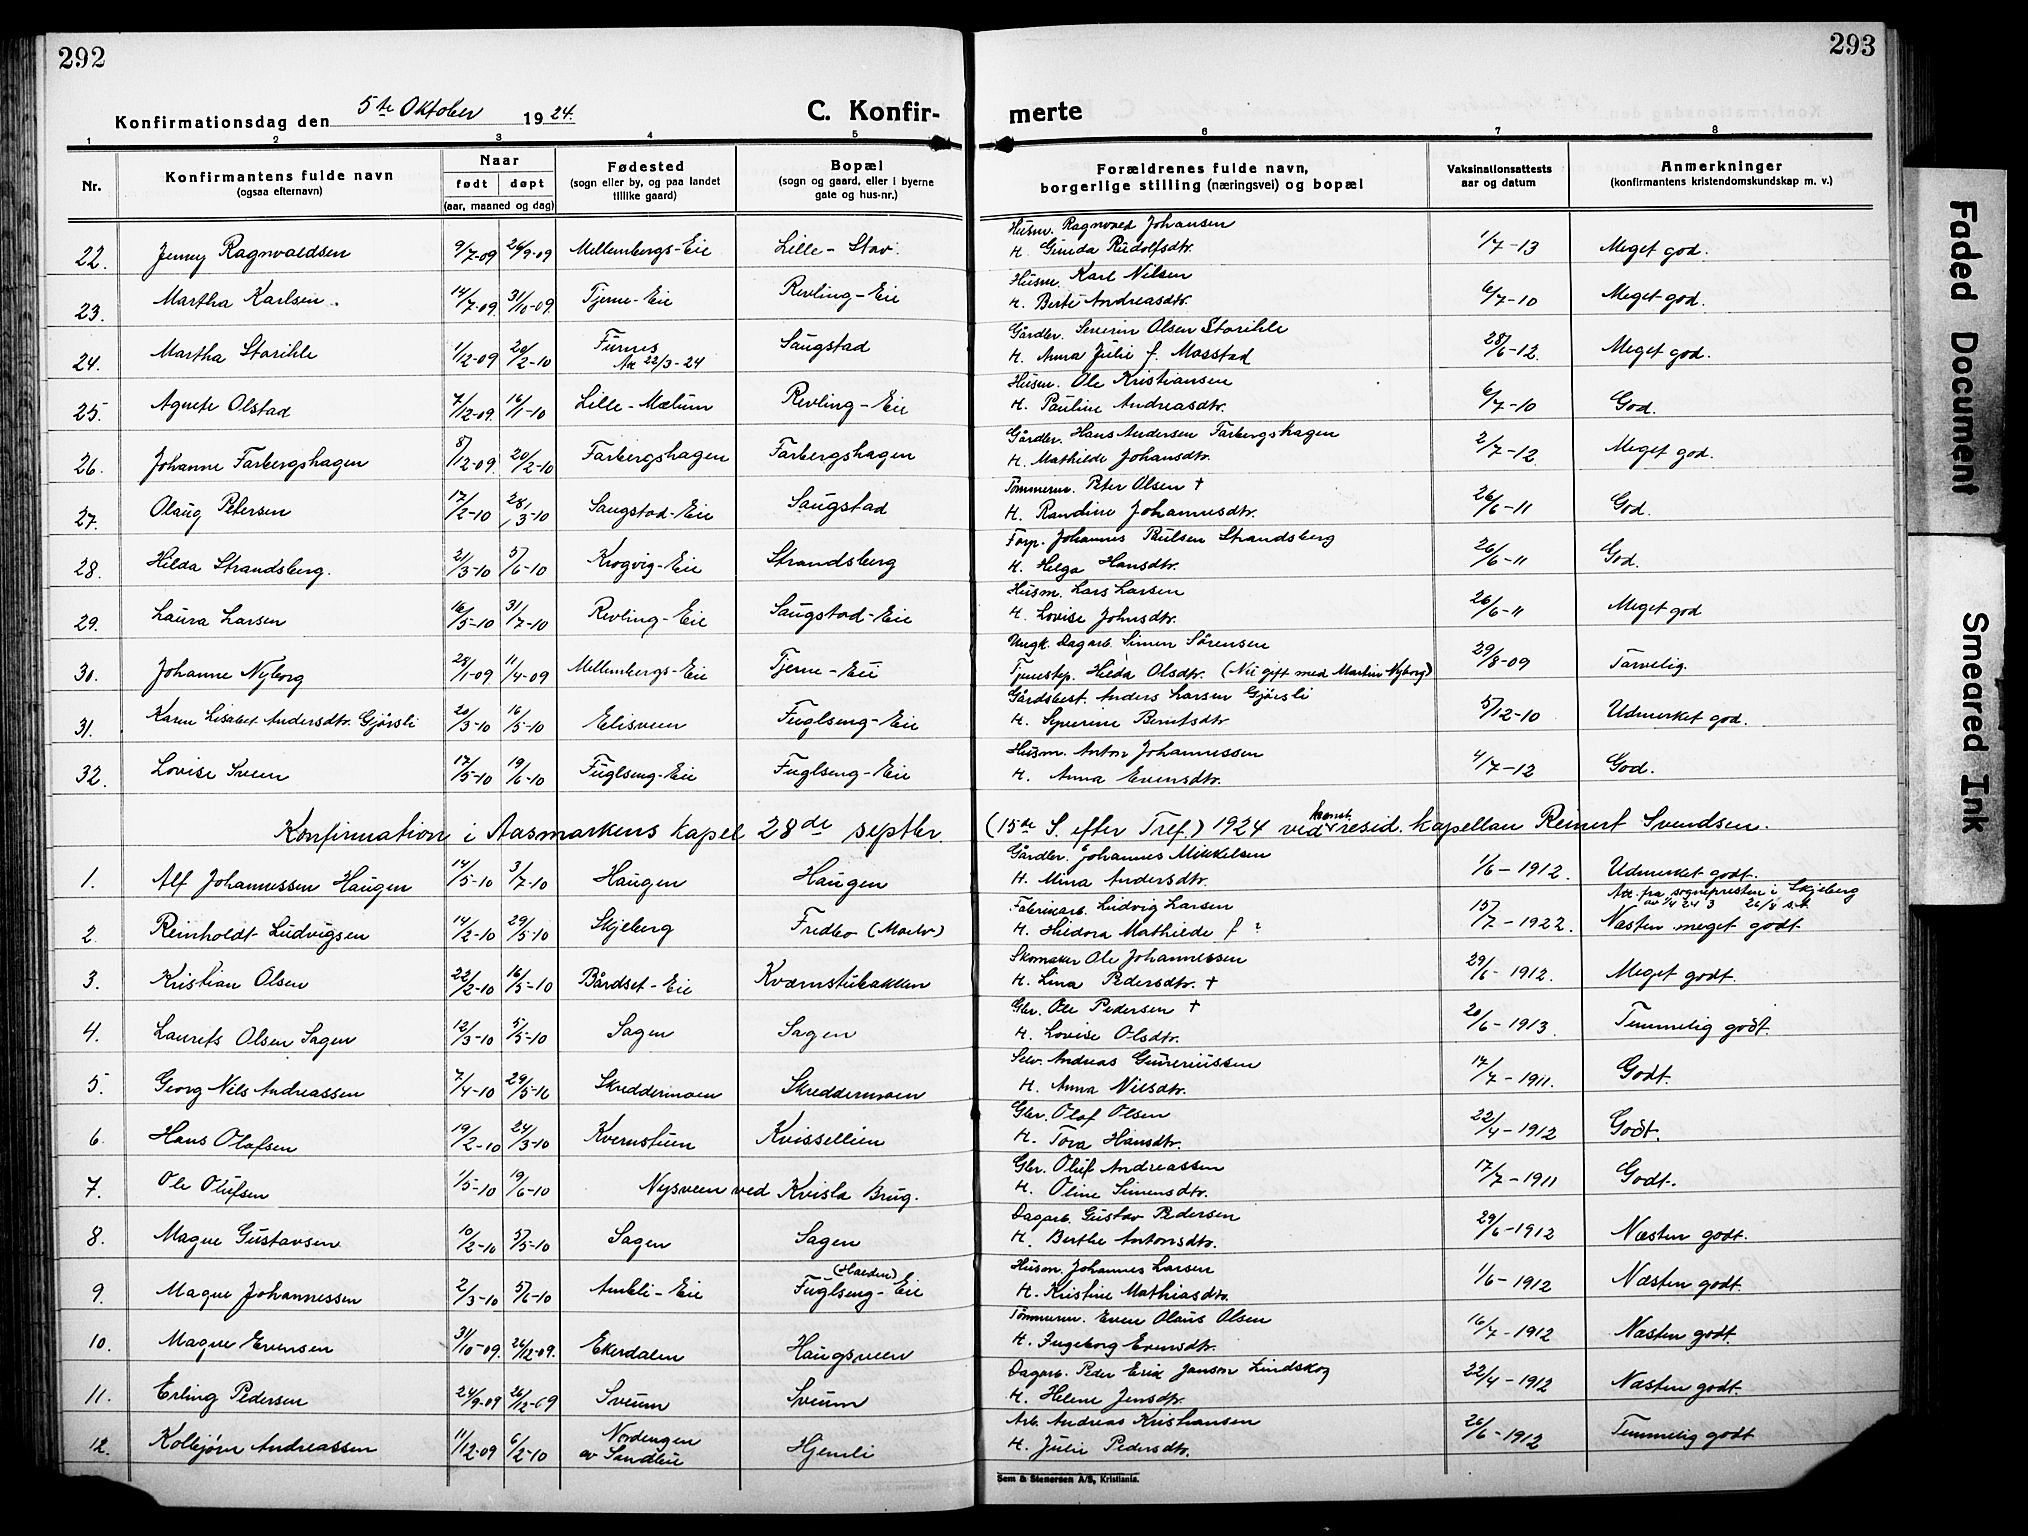 292
293
Konfirmationsdag den 5te Oktober 1924.
C. Konfir- merte
1 2 3 4 5 6 7 8
Nr.
Konfirmantens fulde navn
(ogsaa efternavn)
Naar
født døpt
(aar, maaned og dag)
Fødested
(sogn eller by, og paa landet
tillike gaard)
Bopæl
(sogn og gaard, eller i byerne
gate og hus-nr.)
Forældrenes fulde navn,
borgerlige stilling (næringsvei) og bopæl
Vaksinationsattests
aar og datum
Anmerkninger
(konfirmantens kristendomskundskap m. v.)
22. Jenny Ragnvaldsen 9/7-09 26/9-09 Mellembergs-Eie Lille-Stav. Husm. Ragnvald Johansen
H. Gunda Rudolfsdtr. 1/7-13 Meget god.
23. Martha Karlsen. 14/7-09 31/10-09 Tjerne-Eie Revling-Eie Husm. Karl Nilsen
H. Berte Andreasdtr. 6/7-10 Meget god.
24. Martha Storihle 1/2-09 20/2-10 Furnes Saugstad Gårdbr. Severin Olsen Storihle
Att. 22/3-24 H. Anna Julie f. Mosstad 28/6-12. Meget god.
25. Agnete Olstad 7/12-09 16/1-10 Lille-Mælum Revling-Eie Husm. Ole Kristiansen
H. Pauline Andreasdtr. 6/7-10 God.
26. Johanne Farbergshagen 8/12-09. 20/2-10 Farbergshagen Farbergshagen Gårdbr. Hans Andersen Farbergshagen
H. Mathilde Johansdtr. 2/7-12. Meget god.
27. Olaug Petersen 17/2-10 28/3-10 Saugstad-Eie Saugstad Tømmerm. Peter Olsen †
H. Randine Johannesdtr. 26/6-11 God.
28. Hilda Strandsberg. 21/3-10 5/6-10 Krogvig-Eie Strandsberg Forp. Johannes Paulsen Strandsberg
H. Helga Hansdtr. 26/6-11 God.
29. Laura Larsen 16/5-10 31/7-10 Revling-Eie Saugstad-Eie Husm. Lars Larsen
H. Lovise Johnsdtr. 26/6-11 Meget god
30. Johanne Nyborg 28/1-09. 11/4-09 Mellembergs-Eie Tjerne-Eie Ungk. Dagarb. Simen Sørensen
Tjenestep. Hilda Olsdtr. (Nu gift med Martin Nyborg) 29/8-09 Tarvelig.
31. Karen Lisabet Andersdtr. Gjørsli 20/3-10 16/5-10 Elisveen Fuglseng-Eie Gårdsbest. Anders Larsen Gjørsli
H. Syverine Berntsdtr 5/12-10 Udmerket god.
32. Lovise Sveen 17/5-10 19/6-10 Fuglseng-Eie Fuglseng-Eie Husm. Anton Johannessen
H. Anna Evensdtr. 4/7-12 God.
Konfirmation i Aasmarkens kapel 28de septbr. (15de S. efter Tref.) 1924 ved konst. resid. kapellan Reinert Svendsen.
1. Alf Johannessen Haugen 14/5-10 3/7-10 Haugen Haugen Gårdbr. Johannes Mikkelsen
H. Mina Andersdtr. 1/6-1912. Udmerket godt.
2. Reinholdt Ludvigsen 14/2-10 29/5-10 Skjeberg Fredbo (Moelv) Fabrikarb. Ludvig Larsen
H. Hildora Mathilde f. ? 15/7-1922. Att. fra sognepresten i Skjeberg
Næsten meget godt.
3. Kristian Olsen 22/2-10 16/5-10 Bårdset-Eie Kværnstubakken Skomaker Ole Johannessen
H. Lina Pedersdtr. † 29/6-1912. Meget godt.
4. Laurits Olsen Sagen 12/3-10 5/5-10 Sagen Sagen Gbr. Ole Pedersen †
H. Lovise Olsdtr. 20/6-1913. Temmelig godt.
5. Georg Nils Andreassen 7/4-10 29/5-10 Skreddermoen Skreddermoen Selv. Andreas Guneriussen
H. Anna Nilsdtr. 17/7-1911. Godt.
6. Hans Olafsen 19/2-10 24/3-10 Kvernstuen Kvissellien Gbr. Olaf Olsen
H. Tova Hansdtr. 22/4-1912 Godt.
7. Ole Olufsen 1/5-10 19/6-10 Nysveen ved Kvisla Brug. Gbr. Oluf Andreassen
H. Oline Simensdtr. 17/7-1911 Godt.
8. Magne Gustavsen 10/2-10 5/5-10 Sagen Sagen Dagarb. Gustav Pedersen
H. Berthe Antonsdtr. 29/6-1912 Næsten godt.
9. Magne Johannessen 2/3-10 5/6-10 Amlli-Eie (Halden)
Fuglseng-Eie Husm. Johannes Larsen
H. Kristine Mathiasdtr. 1/6-1912 Næsten godt.
10. Magne Evensen 31/10-09. 26/12-09. Ekerdalen Haugsveen Tømmerm. Even Olaus Olsen
H. Ingeborg Evensdtr. 16/7-1912 Næsten godt.
11. Erling Pedersen 24/9-09 26/12-09 Sveum Sveum Dagarb. Peder Erik Janson Lindskog
H. Helene Jensdtr. 22/4-1912 Næsten godt.
12. Kolbjørn Andreassen 11/12-09 6/2-10 Nordengen
av Sandlie Hjemli Arb. Andreas Kristiansen
H. Julie Pedersdtr. 26/6-1912 Temmelig godt
Sem & Stenersen A/S, Kristiania.
Faded Document
Smeared Ink